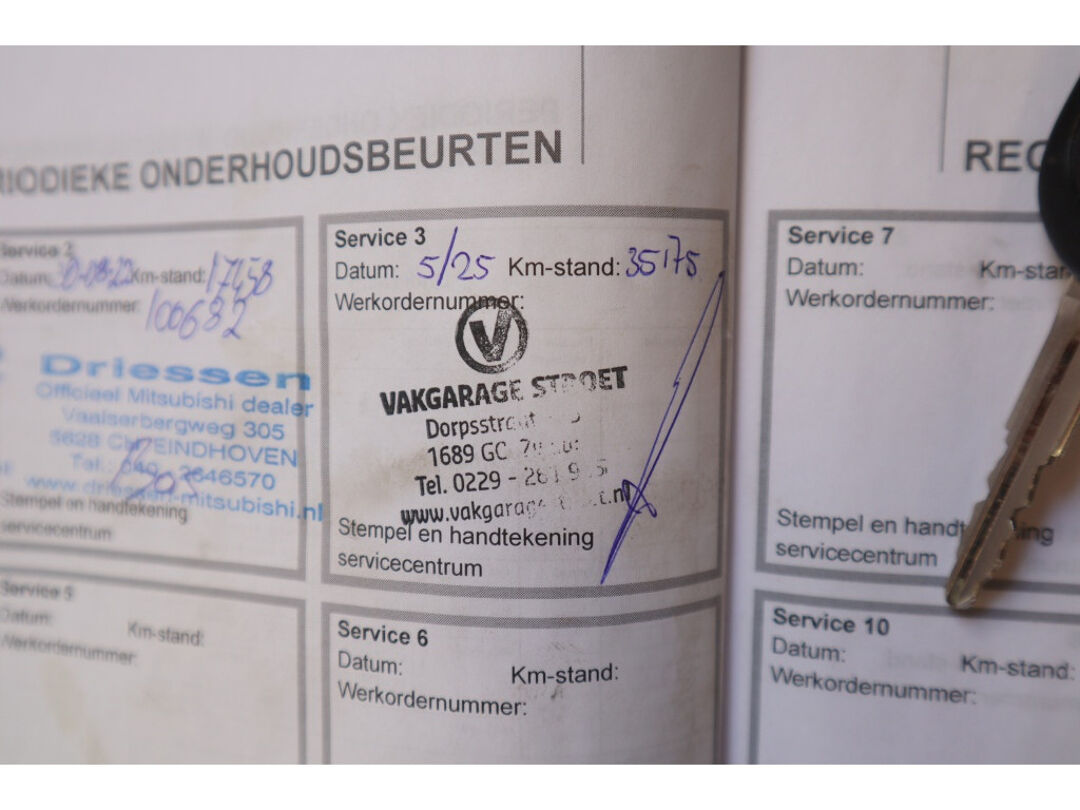 PERIODIEKE ONDERHOUDSBEURTEN
REC
Service 2
Datum: Km-stand: 17458
Werkordernummer: 100682
Driessen
Officieel Mitsubishi dealer
Vaalserbergweg 305
5628 CH EINDHOVEN
Tel.: 040-2646570
www.driessen-mitsubishi.nl
Stempel en handtekening
servicecentrum
Service 3
Datum: 5/25 Km-stand: 35175
Werkordernummer:
V
VAKGARAGE STROET
Dorpsstraat
1689 GC
Tel. 0229 -
www.vakgarage
Stempel en handtekening
servicecentrum
Service 7
Datum: Km-stan
Werkordernummer:
Stempel en handt ning
servicecentrum
Service 5
Datum: Km-stand:
Werkordernummer:
Service 6
Datum: Km-stand:
Werkordernummer:
Service 10
Datum: Km-stand:
Werkordernummer: